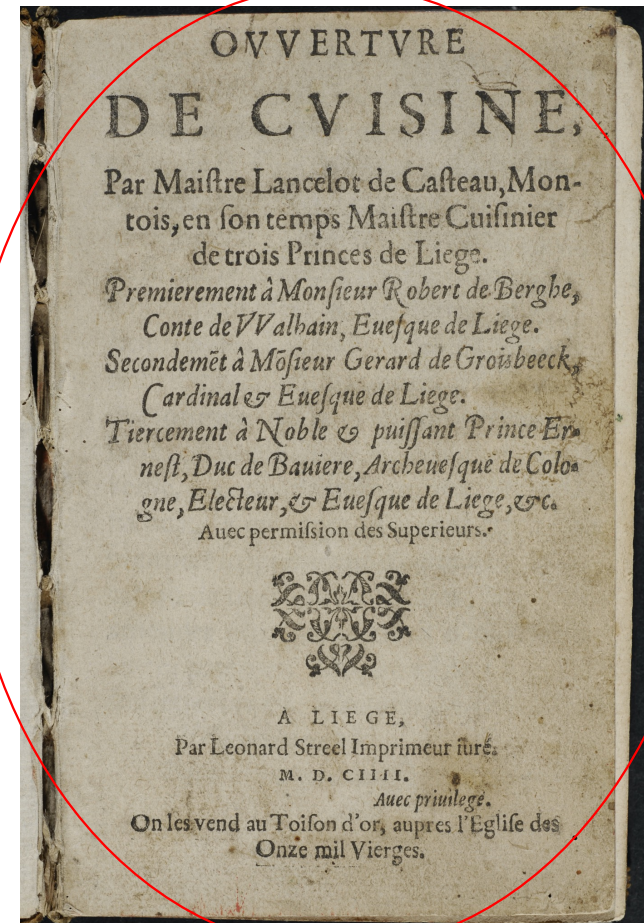 OVVERTVRE
DE CVISINE,
Par Maiſtre Lancelot de Caſteau, Mon-
tois, en ſon temps Maiſtre Cuiſinier
de trois Princes de Liege.
Premierement à Monſieur Robert de Berghe,
Conte de VValhain, Eueſque de Liege.
Secondemēt à Mōſieur Gerard de Groisbeeck,
Cardinal & Eueſque de Liege.
Tiercement à Noble & puiſſant Prince Er-
neſt, Duc de Bauiere, Archeueſque de Colo-
gne, Electeur, & Eueſque de Liege, &c.
Auec permiſsion des Superieurs.
A LIEGE,
Par Leonard Streel Imprimeur iuré.
M. D. CIIII.
Auec priuilege.
On les vend au Toiſon d'or, aupres l'Egliſe des
Onze mil Vierges.